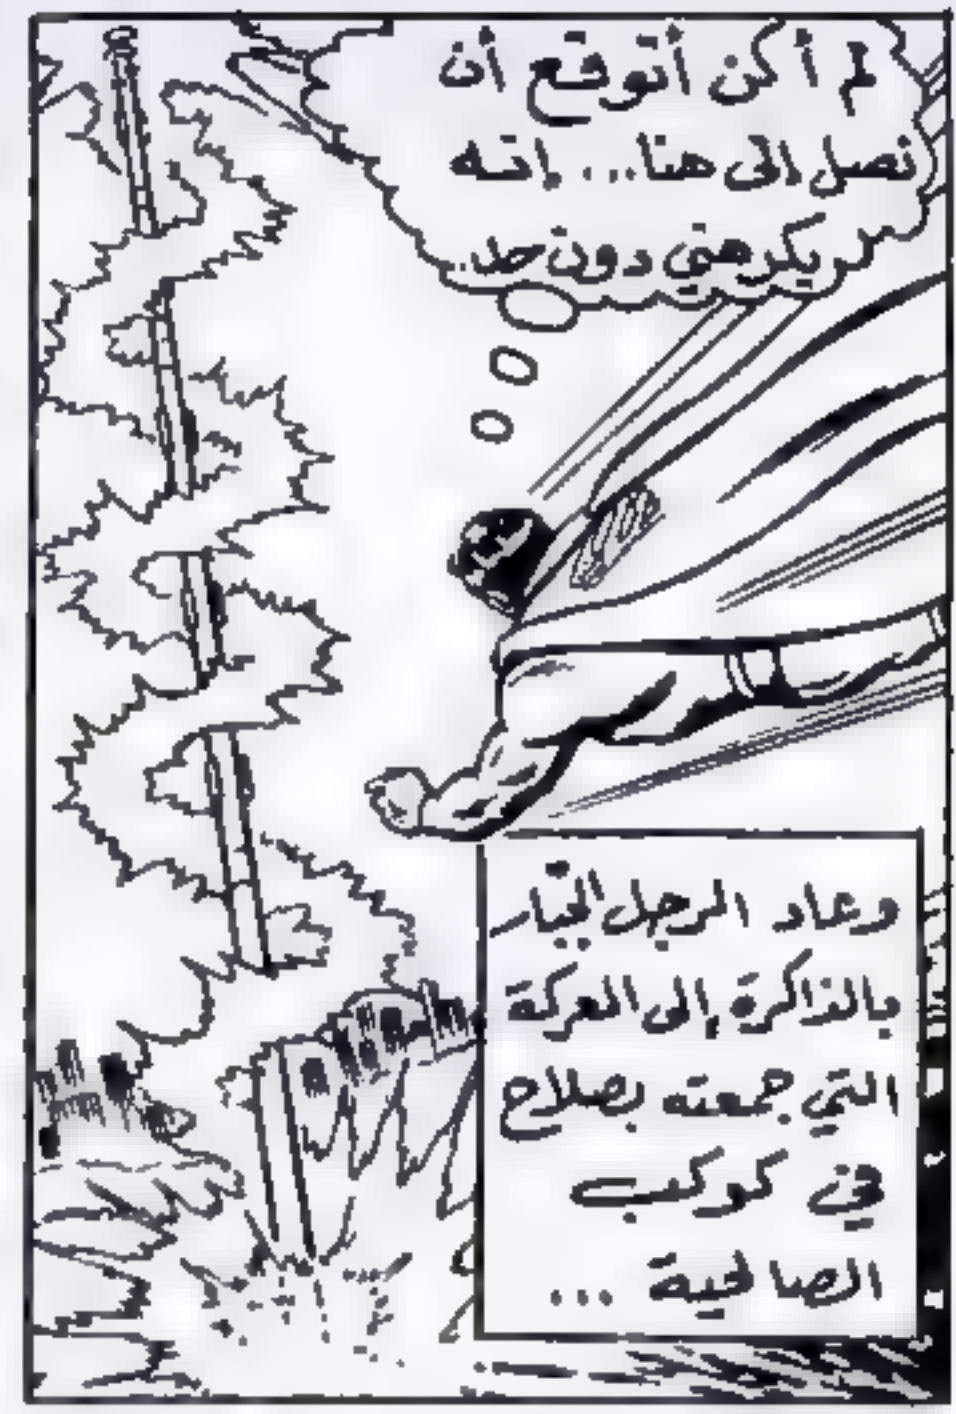 لم أكن أتوقع أن
نصل إلى هنا... إنه
يكرهني دون حد..
وعاد الرجل الجبار
بالذاكرة إلى المعركة
التي جمعته بصلاح
في كوكب
الصالحية ...